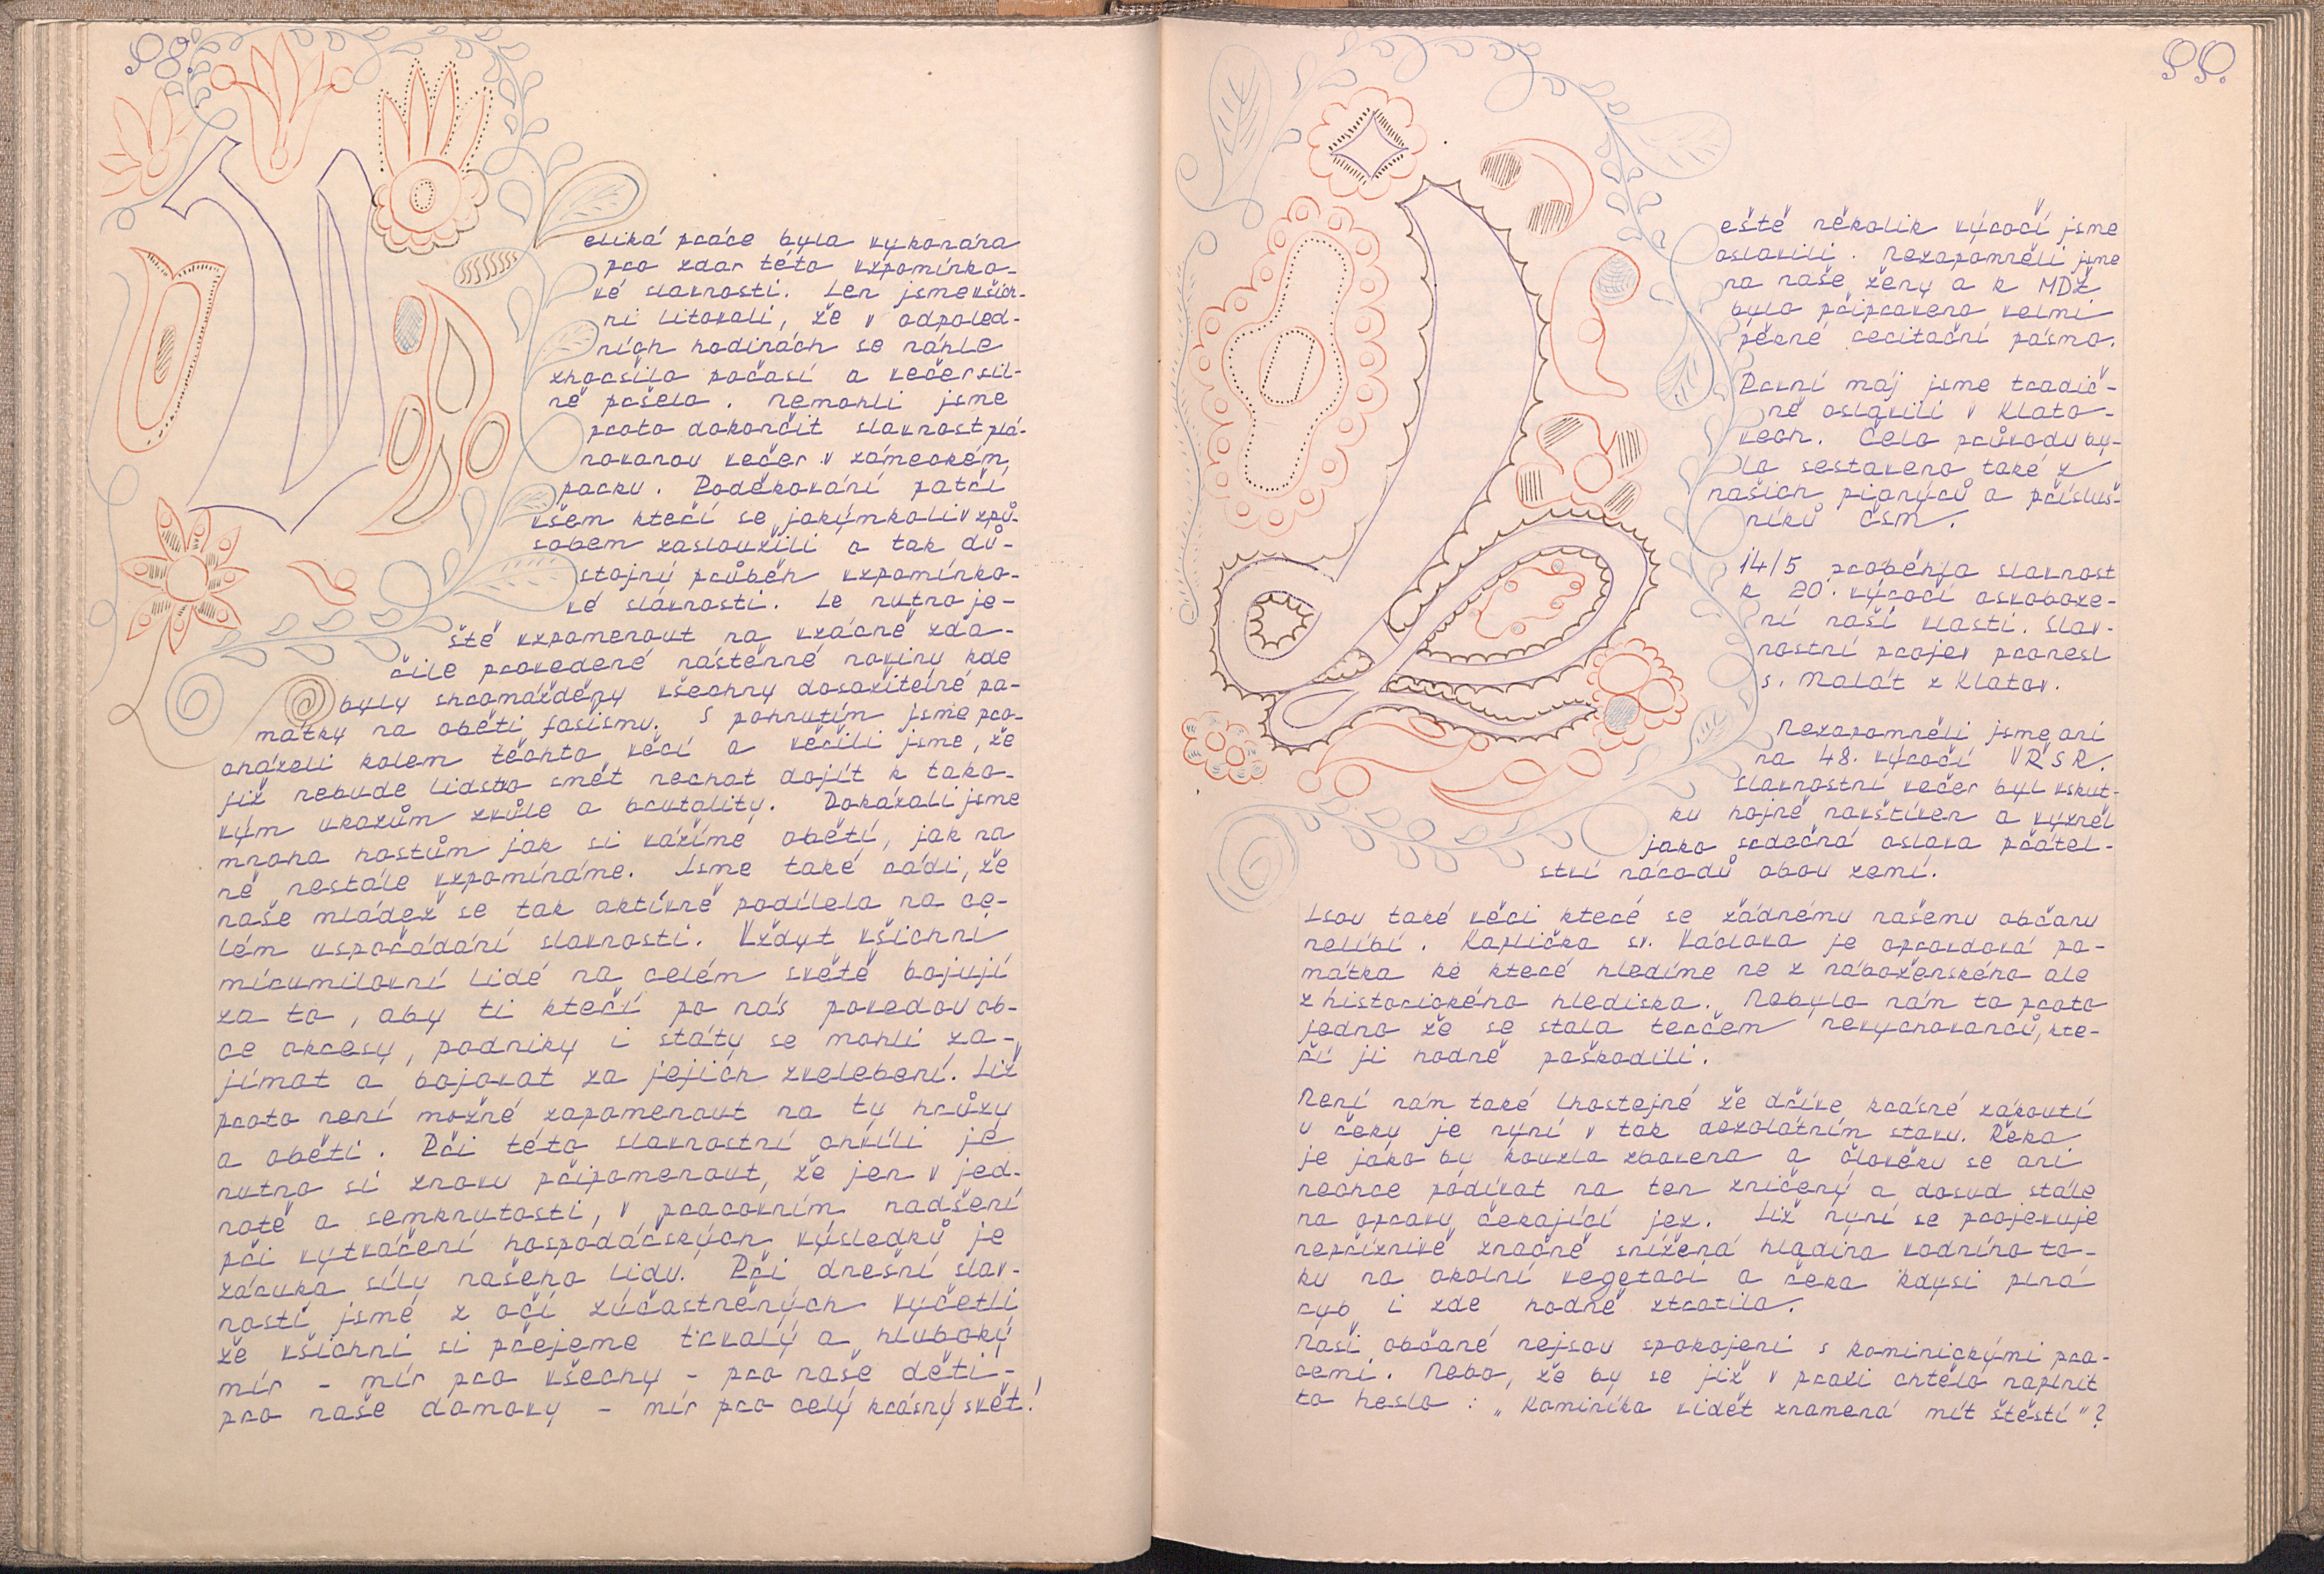 98.
Veliká práce byla vykonána
pro zdar této vzpomínko-
vé slavnosti. Jen jsme všich-
ni litovali, že v odpoled-
ních hodinách se náhle
zhoršilo počasí a večer sil-
ně pršelo. Nemohli jsme
proto dokončit slavnost plá-
novanou večer v zámeckém
parku. Poděkování patří
všem kteří se jakýmkoliv způ-
sobem zasloužili o tak dů-
stojný průběh vzpomínko-
vé slávnosti. Je nutno je-
ště vzpomenout na vzácně zda-
řile provedené nástěnné noviny kde
byly shromážděny všechny dosažitelné pa-
mátky na oběti fašismu. S pohnutím jsme pro-
cházeli kolem těchto věcí a věřili jsme, že
již nebude lidstvo smět nechat dojít k tako-
vým ukazům zvůle a brutality. Dokázali jsme
mnoha hostům jak si vážíme obětí, jak na
ně nestále vzpomínáme. Jsme také rádi, že
naše mládež se tak aktívně podílela na ce-
lém uspořádání slavnosti. Vždyt všichni
mírumilovní lidé na celém světě bojují
za to, aby ti kteří po nás povedou ob-
ce okresy, podniky i státy se mohli za-
jímat a bojovat za jejich zvelebení. Již
proto není možné zapomenout na ty hrůzy
a oběti. Při této slavnostní chvíli je
nutno si znovu připomenout, že jen v jed-
notě a semknutosti, v pracovním nadšení
při vytváření hospodářských výsledků je
záruka síly našeho lidu. Při dnešní slav-
nosti jsme z očí zúčastněných vyčetli
že všichni si přejeme trvalý a hluboký
mír - mír pro všechny - pro naše děti -
pro naše domovy - mír pro celý krásný svět!
99.
Ještě několik výročí jsme
oslavili. Nezapomněli jsme
na naše ženy a k MDŽ
bylo připraveno velmi
pěkné recitační pásmo.
První máj jsme tradič-
ně oslavili v Klato-
vech. Čelo průvodu by-
lo sestaveno také z
našich pionýrů a přísluš-
níků ČSM.
14/5 proběhla slavnost
k 20. výročí osvoboze-
ní naší vlasti. Slav-
nostní projev pronesl
s. Malát z Klatov.
Nezapomněli jsme ani
na 48. výročí VŘSR.
Slavnostní večer byl vskut-
ku hojně navštíven a vyzněl
jako srdečná oslava přátel-
ství národů obou zemí.
Jsou také věci které se žádnému našemu občanu
nelíbí. Kaplička sv. Václava je opravdová pa-
mátka ke které hledíme ne z náboženského ale
z historického hlediska. Nebylo nám to proto
jedno že se stala terčem nevychovanců, kte-
ří ji hodně poškodili.
Není nám také lhostejné že dříve krásné zákoutí
u řeky je nyní v tak dezolátním stavu. Řeka
je jako by kouzla zbavena a človéku se ani
nechce podívat na ten zničený a dosud stále
na opravu čekající jez. Již nyní se projevuje
nepříznivě značně snížená hladina vodního to-
ku na okolní vegetaci a řeka kdysi plná
ryb i zde hodně ztratila.
Naši občané nejsou spokojeni s kominickými pra-
cemi. Nebo, že by se již v praxi chtělo naplnit
to heslo: „Kominíka vidět znamená mít štěstí"?